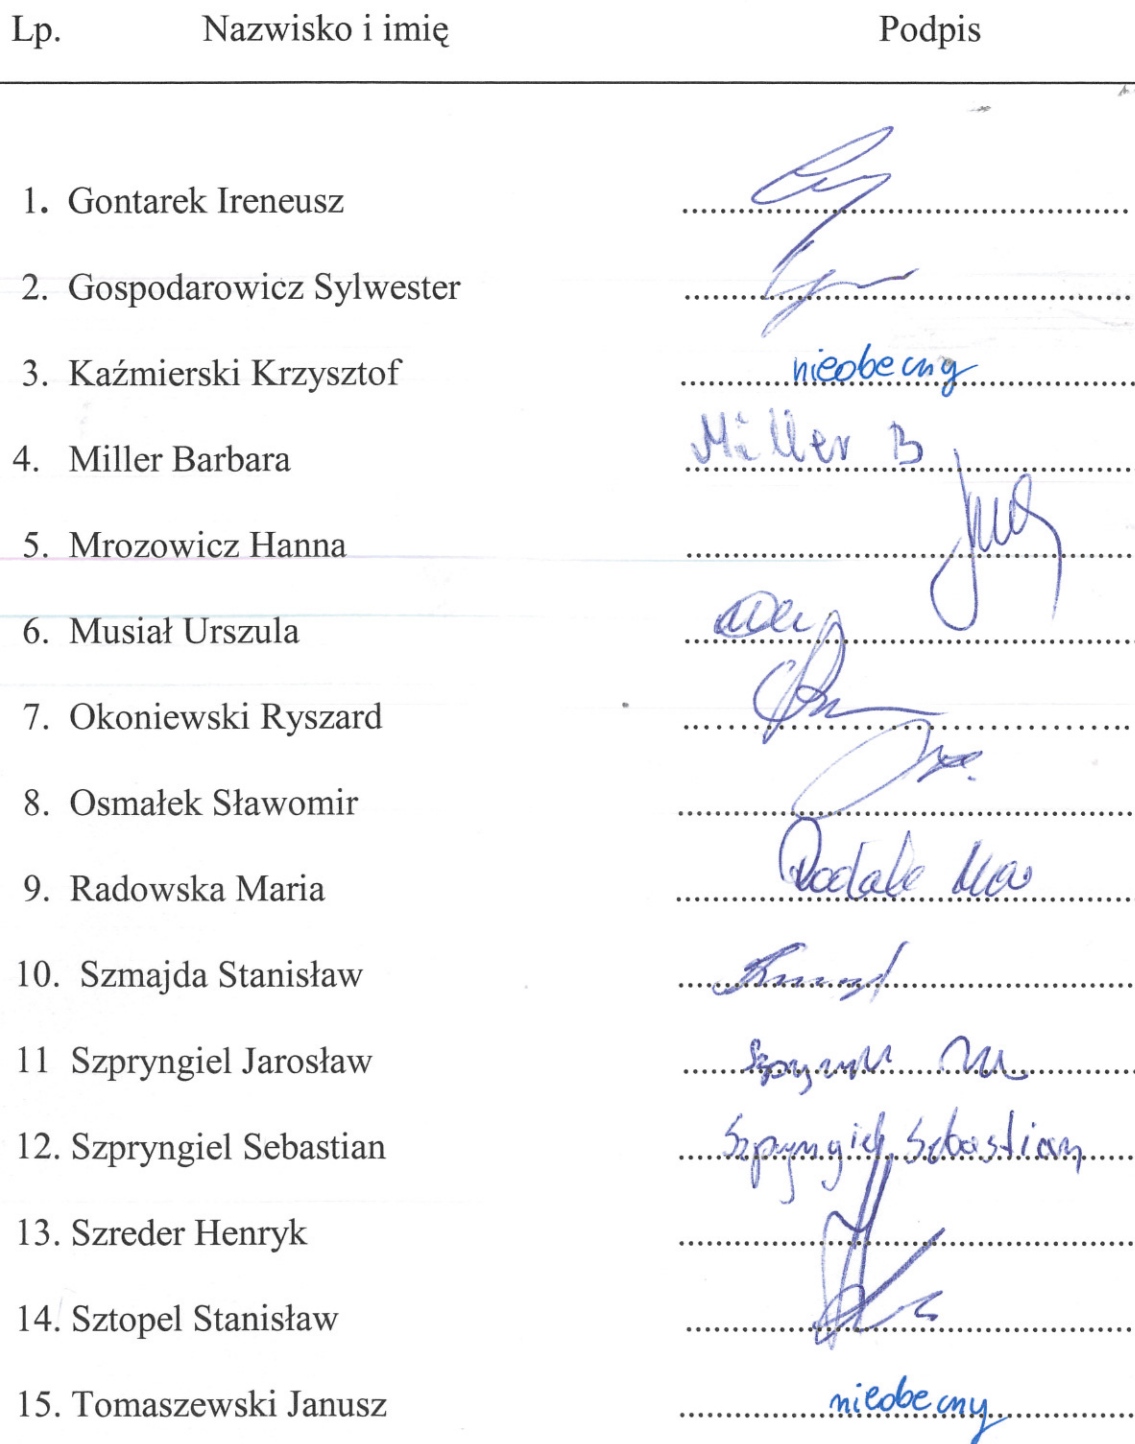 Lp. Nazwisko i imię Podpis
1. Gontarek Ireneusz
2. Gospodarowicz Sylwester
3. Kaźmierski Krzysztof nieobecny
4. Miller Barbara Miller B
5. Mrozowicz Hanna
6. Musiał Urszula
7. Okoniewski Ryszard
8. Osmałek Sławomir
9. Radowska Maria
10. Szmajda Stanisław
11 Szpryngiel Jarosław
12. Szpryngiel Sebastian Szpryngiel Sebastian
13. Szreder Henryk
14. Sztopel Stanisław
15. Tomaszewski Janusz nieobecny